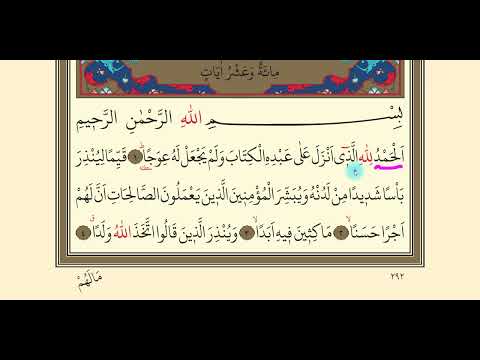 مِائَةٌ وَعَشْرُ اٰيَاتٍ
بِسْمِ اللهِ الرَّحْمٰنِ الرَّحٖيمِ
اَلْحَمْدُ لِلهِ الَّذٖٓى اَنْزَلَ عَلٰى عَبْدِهِ الْكِتَابَ وَلَمْ يَجْعَلْ لَهُ عِوَجًا ١ قَيِّمًا لِيُنْذِرَ
بَاْسًا شَدٖيدًا مِنْ لَدُنْهُ وَيُبَشِّرَ الْمُؤْمِنٖينَ الَّذٖينَ يَعْمَلُونَ الصَّالِحَاتِ اَنَّ لَهُمْ
اَجْرًا حَسَنًا ٢ مَاكِثٖينَ فٖيهِ اَبَدًا ٣ وَيُنْذِرَ الَّذٖينَ قَالُوا اتَّخَذَ اللهُ وَلَدًا ٤
مَالَهُمْ
٢٩٢